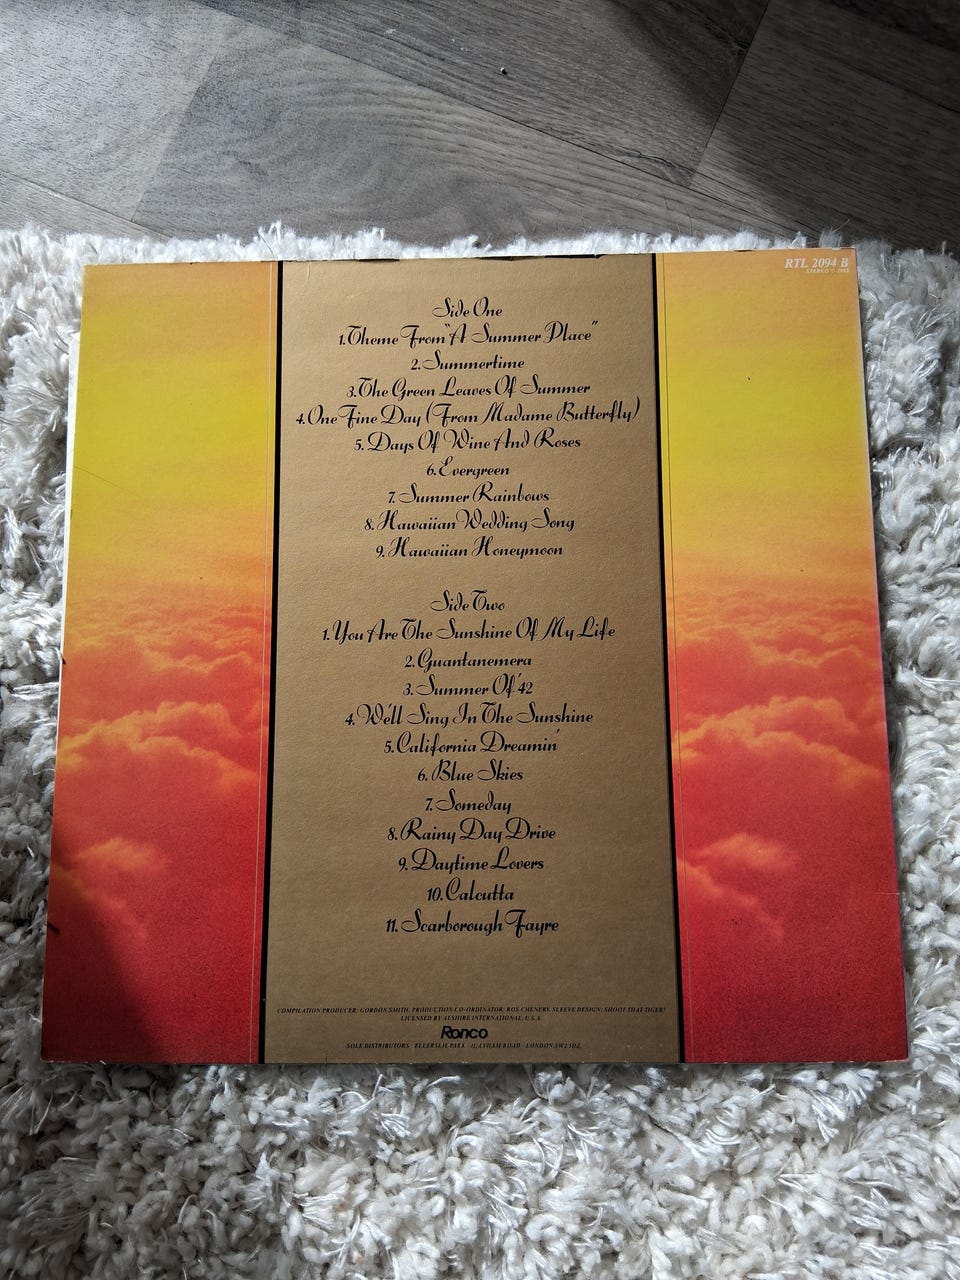 RTL 2094 B
STEREO ℗ 1983
Side One
1. Theme From "A Summer Place"
2. Summertime
3. The Green Leaves Of Summer
4. One Fine Day (From Madame Butterfly)
5. Days Of Wine And Roses
6. Evergreen
7. Summer Rainbows
8. Hawaiian Wedding Song
9. Hawaiian Honeymoon
Side Two
1. You Are The Sunshine Of My Life
2. Guantanemera
3. Summer Of '42
4. We'll Sing In The Sunshine
5. California Dreamin'
6. Blue Skies
7. Someday
8. Rainy Day Drive
9. Daytime Lovers
10. Calcutta
11. Scarborough Fayre
COMPILATION PRODUCER: GORDON SMITH. PRODUCTION CO-ORDINATOR: ROS CHENERY. SLEEVE DESIGN: SHOOT THAT TIGER!
LICENSED BY ALSHIRE INTERNATIONAL, U.S.A.
Ronco
SOLE DISTRIBUTORS · ELLERSLIE PARK · 11, LYHAM ROAD · LONDON SW2 5DZ.